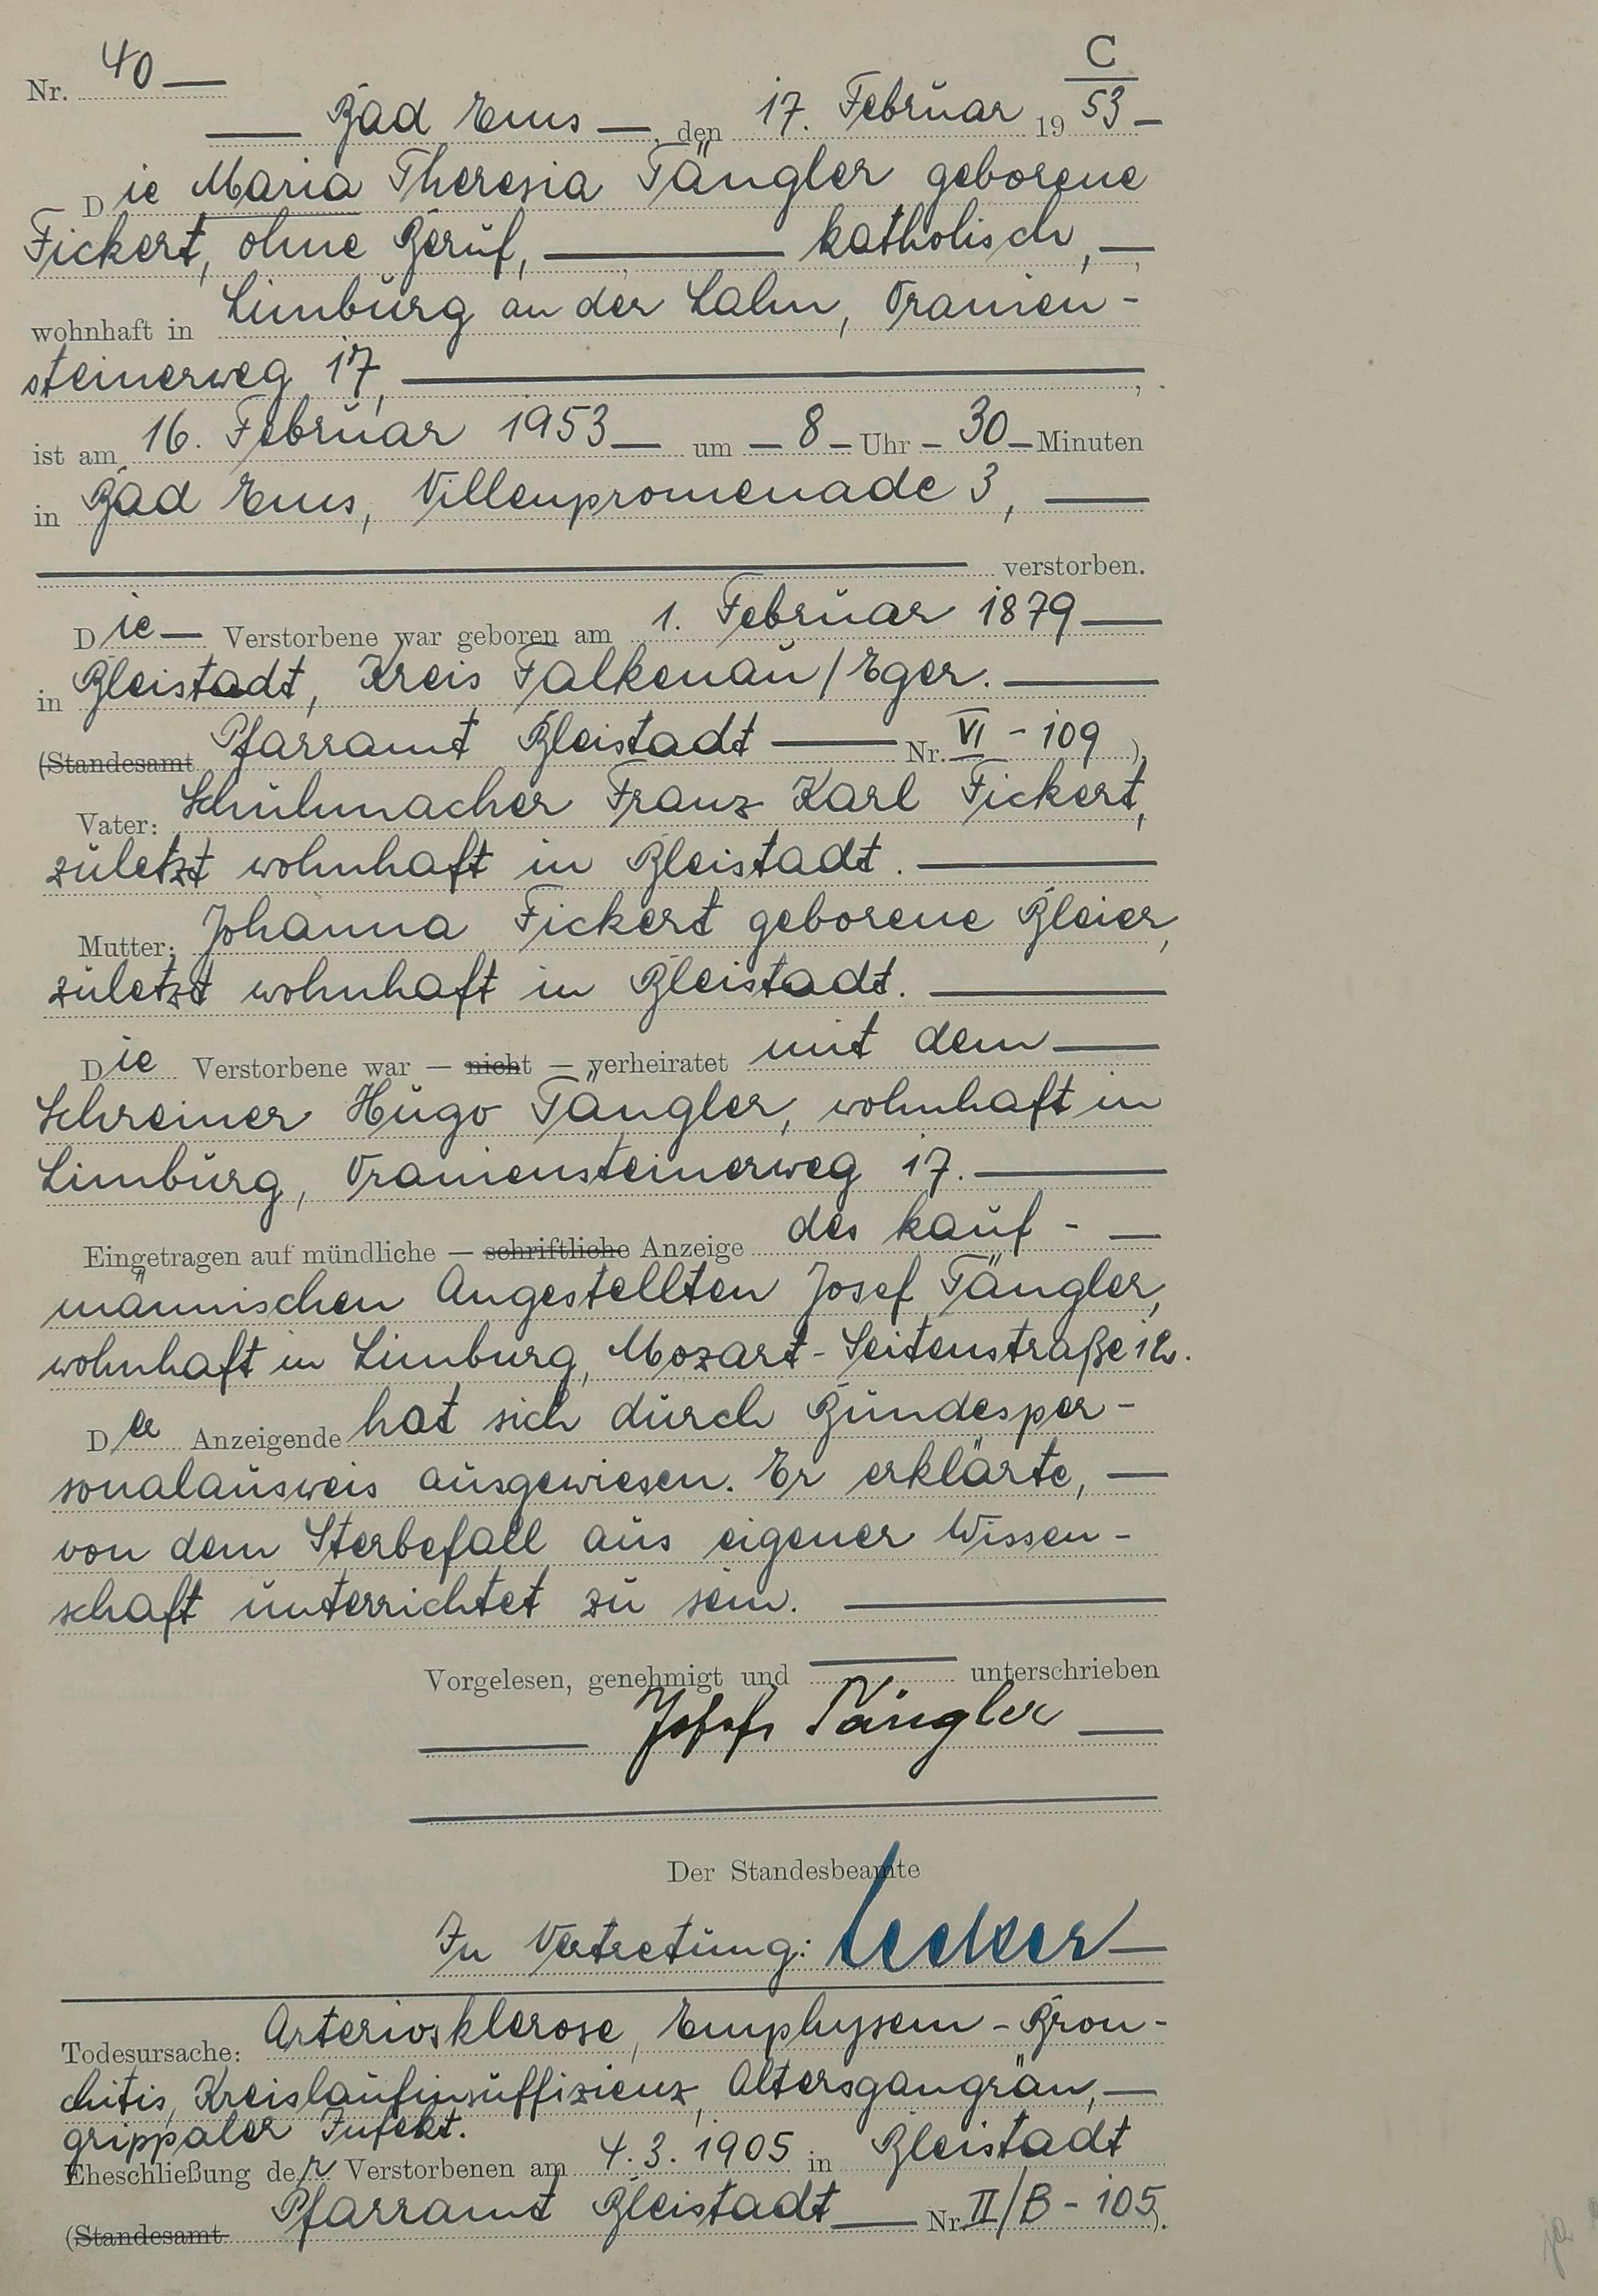 C
Nr. 40 —
— Bad Ems —, den 17. Februar 19 53 —
Die Maria Theresia Tängler geborene
Fickert, ohne Beruf, — katholisch, —
wohnhaft in Limburg an der Lahn, Oranien-
steinerweg 17, —
ist am 16. Februar 1953 — um — 8 — Uhr — 30 — Minuten
in Bad Ems, Villenpromenade 3, —
— verstorben.
Die — Verstorbene war geboren am 1. Februar 1879 —
in Bleistadt, Kreis Falkenau/Eger. —
(Standesamt Pfarramt Bleistadt — Nr. VI - 109 ),
Vater: Schuhmacher Franz Karl Fickert,
zuletzt wohnhaft in Bleistadt. —
Mutter: Johanna Fickert geborene Bleier,
zuletzt wohnhaft in Bleistadt. —
Die Verstorbene war — nicht — verheiratet mit dem —
Schreiner Hugo Tängler, wohnhaft in
Limburg, Oraniensteinerweg 17. —
Eingetragen auf mündliche — schriftliche Anzeige des kauf- —
männischen Angestellten Josef Tängler,
wohnhaft in Limburg, Mozart-Seitenstraße
Der Anzeigende hat sich durch Bundesper-
sonalausweis ausgewiesen. Er erklärte, —
von dem Sterbefall aus eigener Wissen-
schaft unterrichtet zu sein. —
Vorgelesen, genehmigt und — unterschrieben
— Josef Tängler —
Der Standesbeamte
In Vertretung:
Todesursache: Arteriosklerose, Emphysem-Bron-
chitis, Kreislaufinsuffizienz, Altersgangrän, —
grippaler Infekt.
Eheschließung der Verstorbenen am 4.3.1905 in Bleistadt
(Standesamt Pfarramt Bleistadt — Nr. II/B - 105).